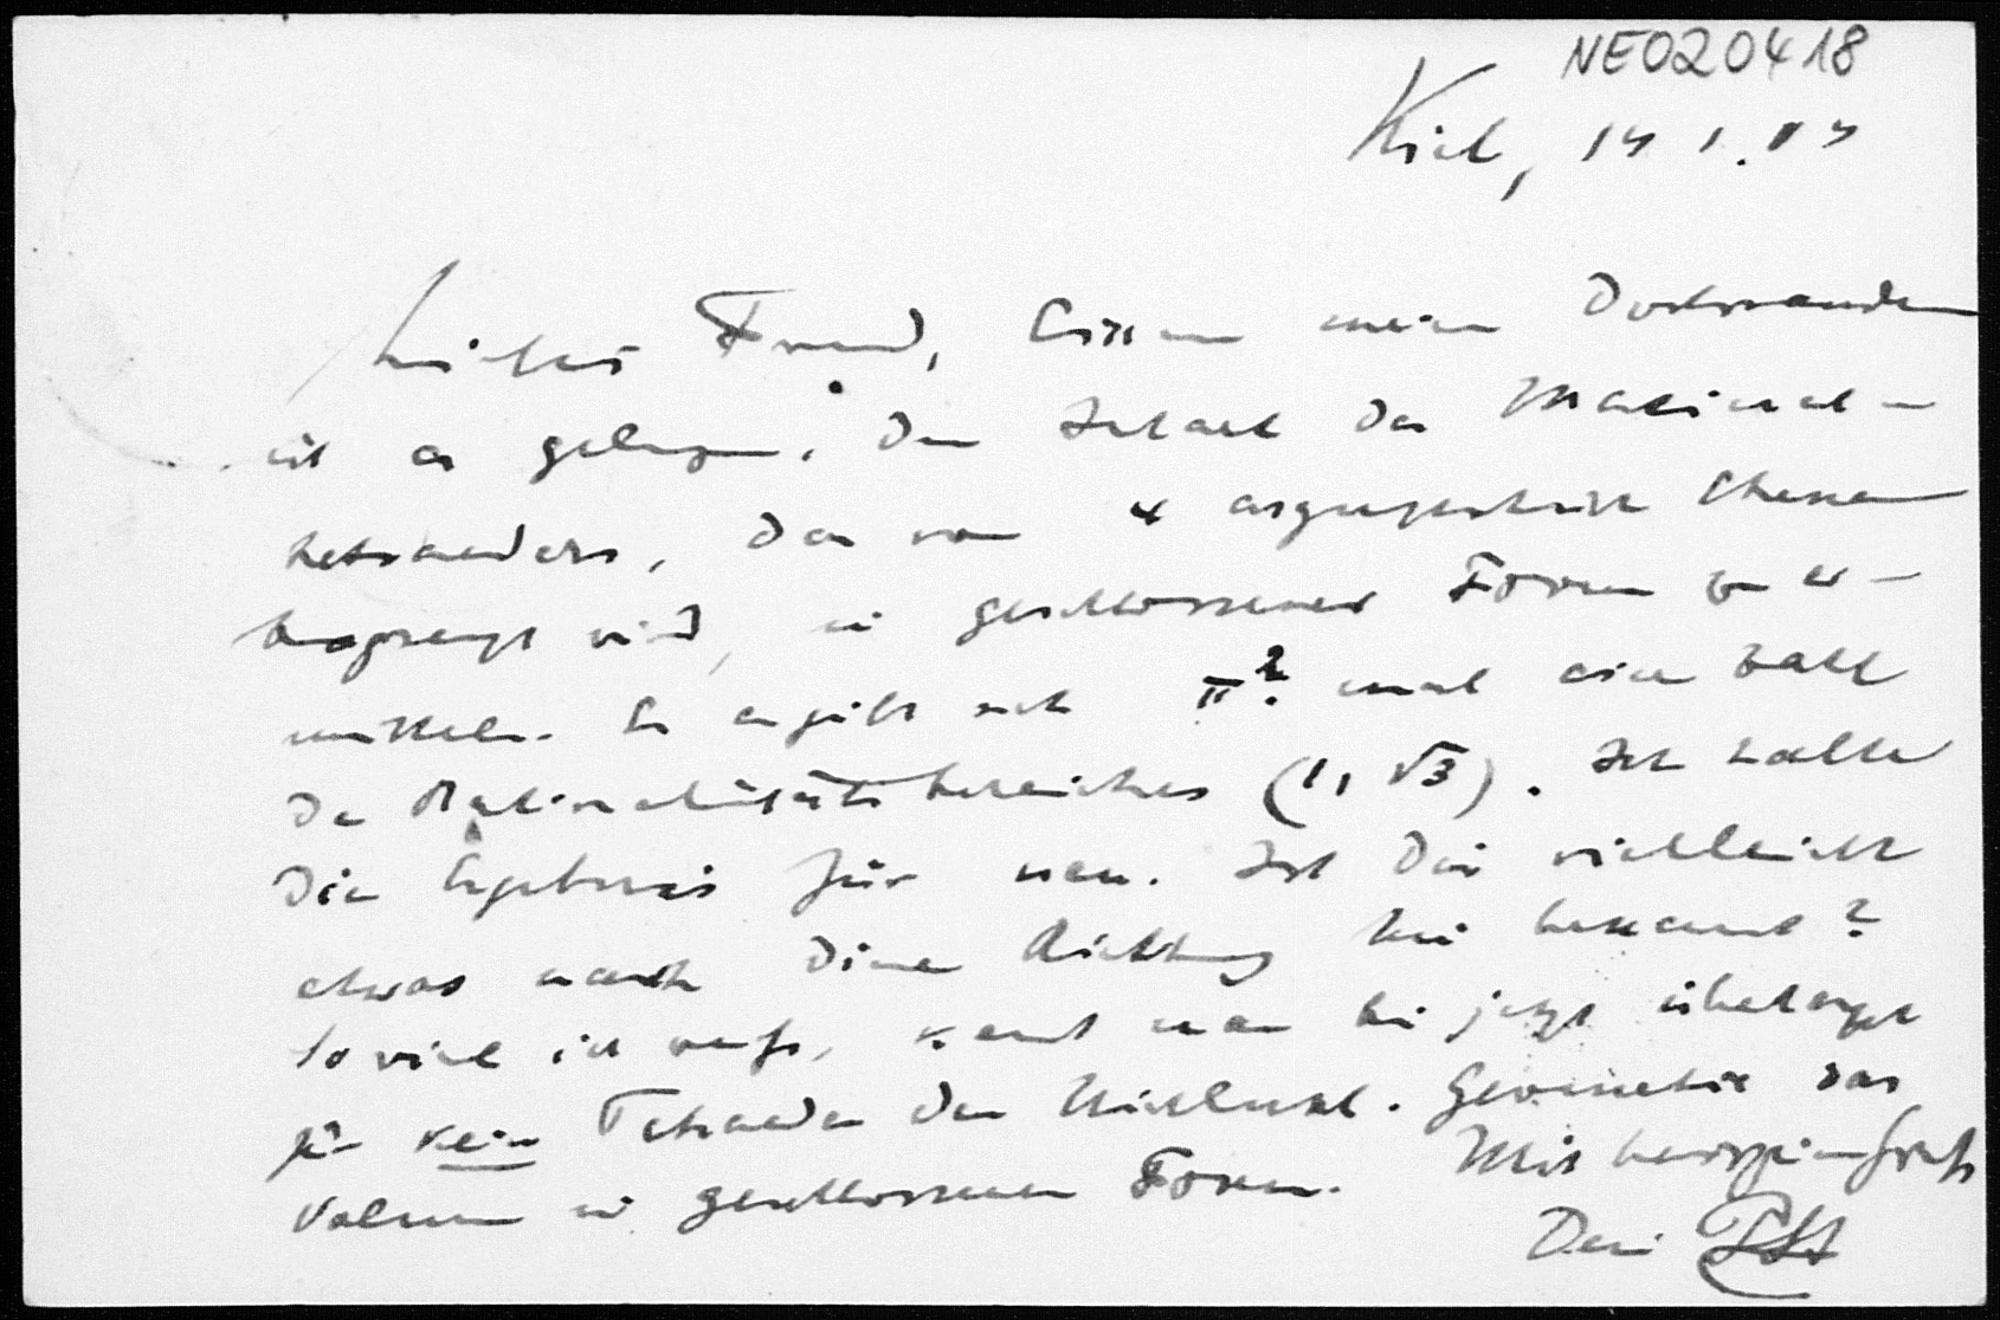 NE020418
Kiel, 14 1. 14
Lieber Freund, Einem meiner Doktoranden
ist es gelungen, den Inhalt des Maximal-
tetraeders, das von 4 asymptotischen Ebenen
begrenzt wird, in geschlossener Form zu er-
mitteln. Es ergibt sich π². mal eine Zahl
des Rationalitätsbereiches (1, √3). Ich halte
die Ergebnis für neu. Ist Dir vielleicht
etwas nach dieser Richtung hin bekannt?
Soviel ich weiß, kennt man bis jetzt überhaupt
für kein Tetraeder der Nichteukl. Geometrie das
Volumen in geschlossener Form. Mit herzlichem Gruß
Dein